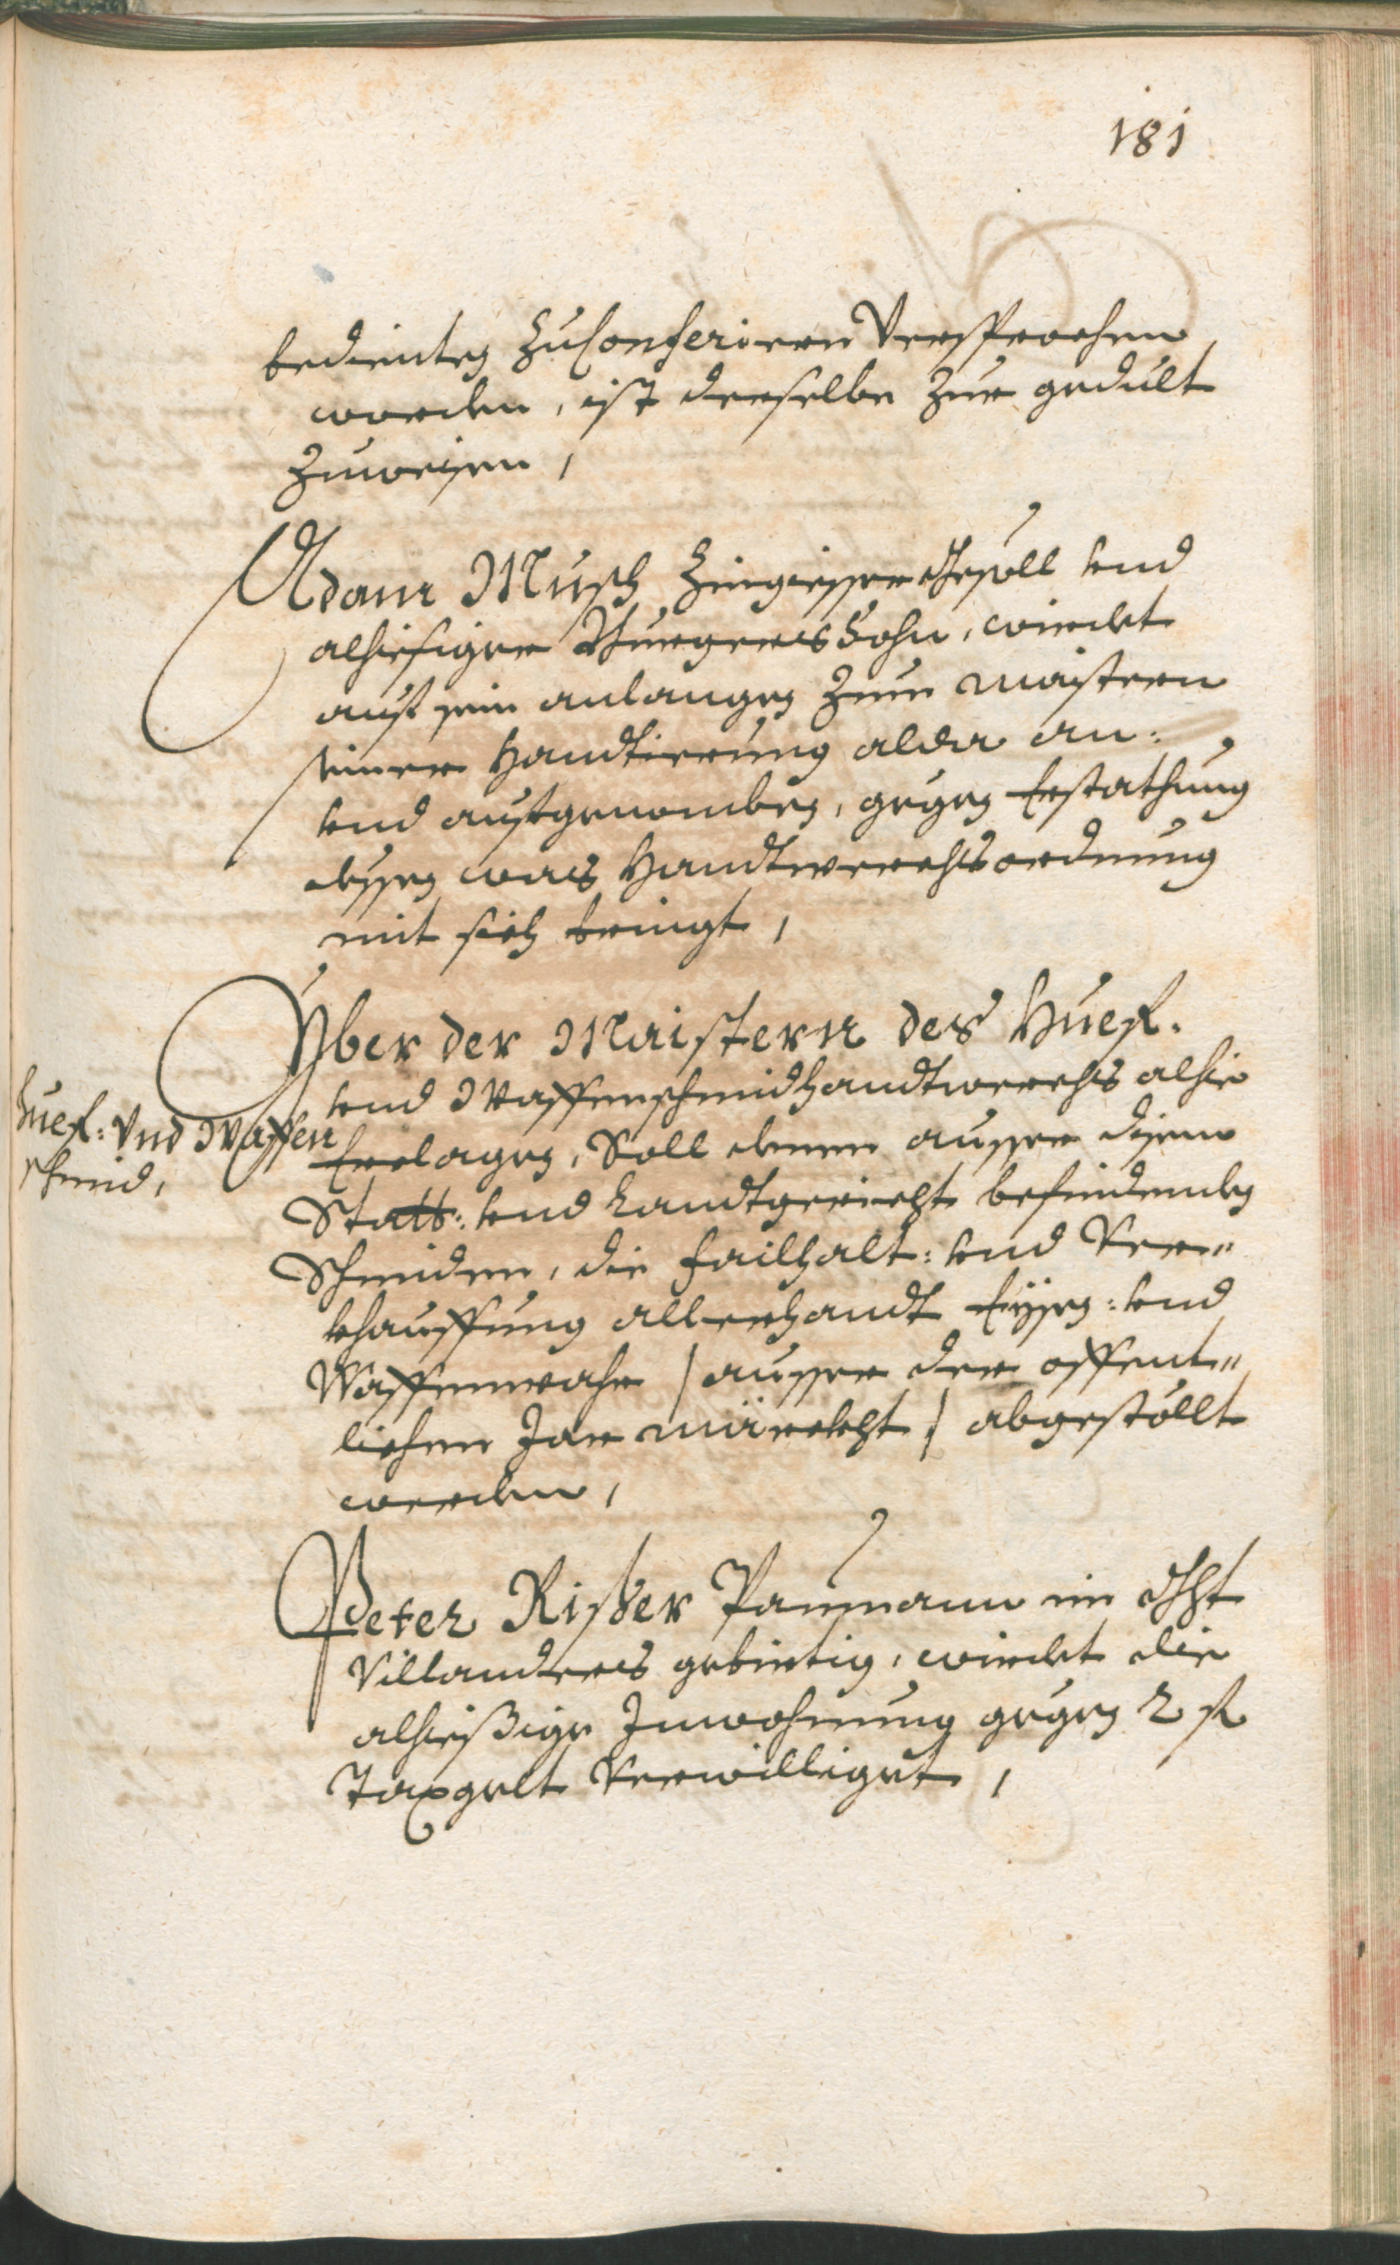 181
bedienten zu Conferieren Versprochen
worden, ist derselbe zur gedult
zuweisen,
Adam Musch Zingiesser Gesöll vnd
alhiesiger Burgers Sohn, wierdet
auf sein anlangen zum maistern
seiner Handtierung alda an:
vnd aufgenomben, gegen Erstathung
dessen was Handtwerchsordnung
mit sich bringt,
Yber der Maistern des Huef.
vnd Waffenschmidhandtwerchs alhie
Huef: vnd Waffen
schmid,
Erclagen, Soll denen ausser disem
Statt: vnd Landtgericht befindenden
Schmiden, die failhalt: vnd Ver„
khauffung allerhandt Eysen: vnd
Waffenwahr / ausser der offent„
lichen Jar märckht / abgestöllt
werden,
Peter Risser Paumann im Ght
Villanders gebirtig, wierdet die
alhießige Inwohnung gegen 2 fl
Taxgelt Verwilliget,